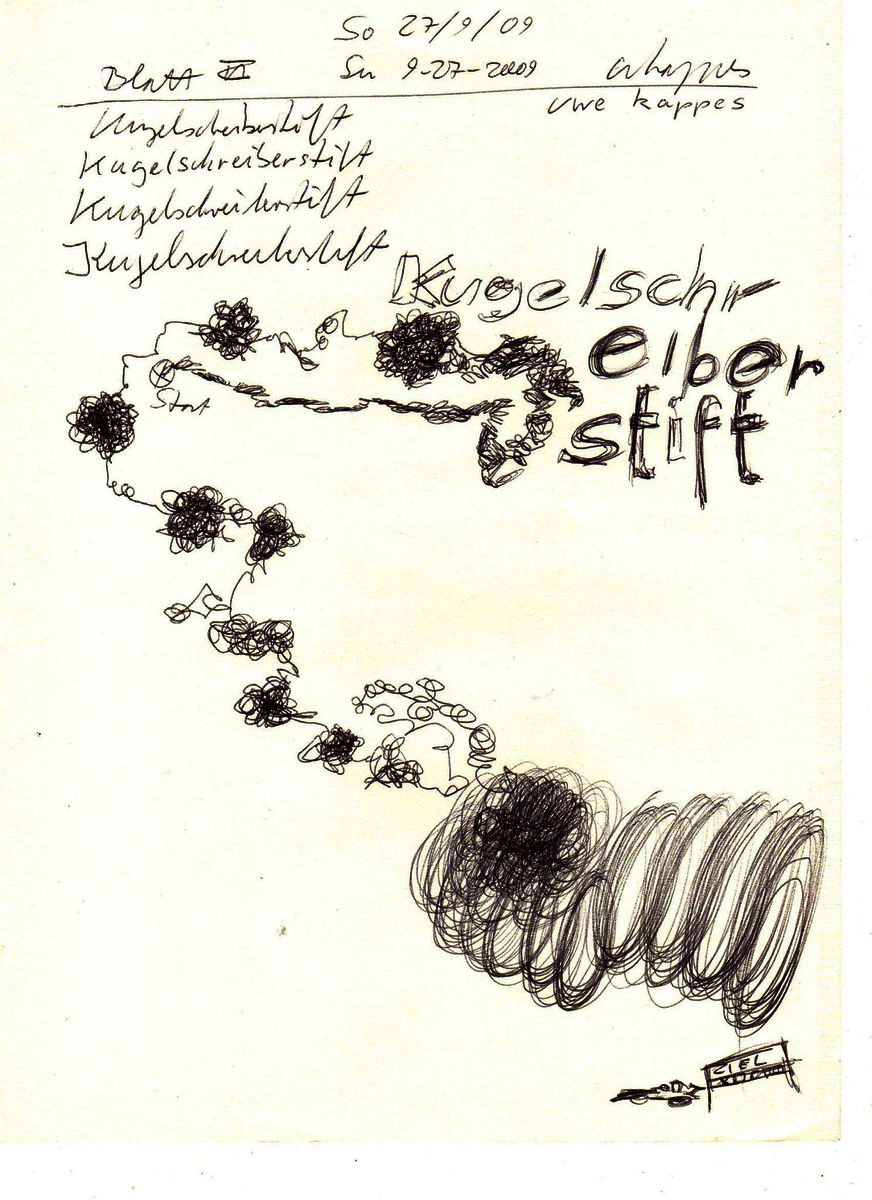 So 27/9/09
Blatt VI Su 9-27-2009 ukappes
uwe kappes
Kugelschreiberstift
Kugelschreiberstift
Kugelschreiberstift
Kugelschreiberstift
Kugelschr
eiber
stift
Start